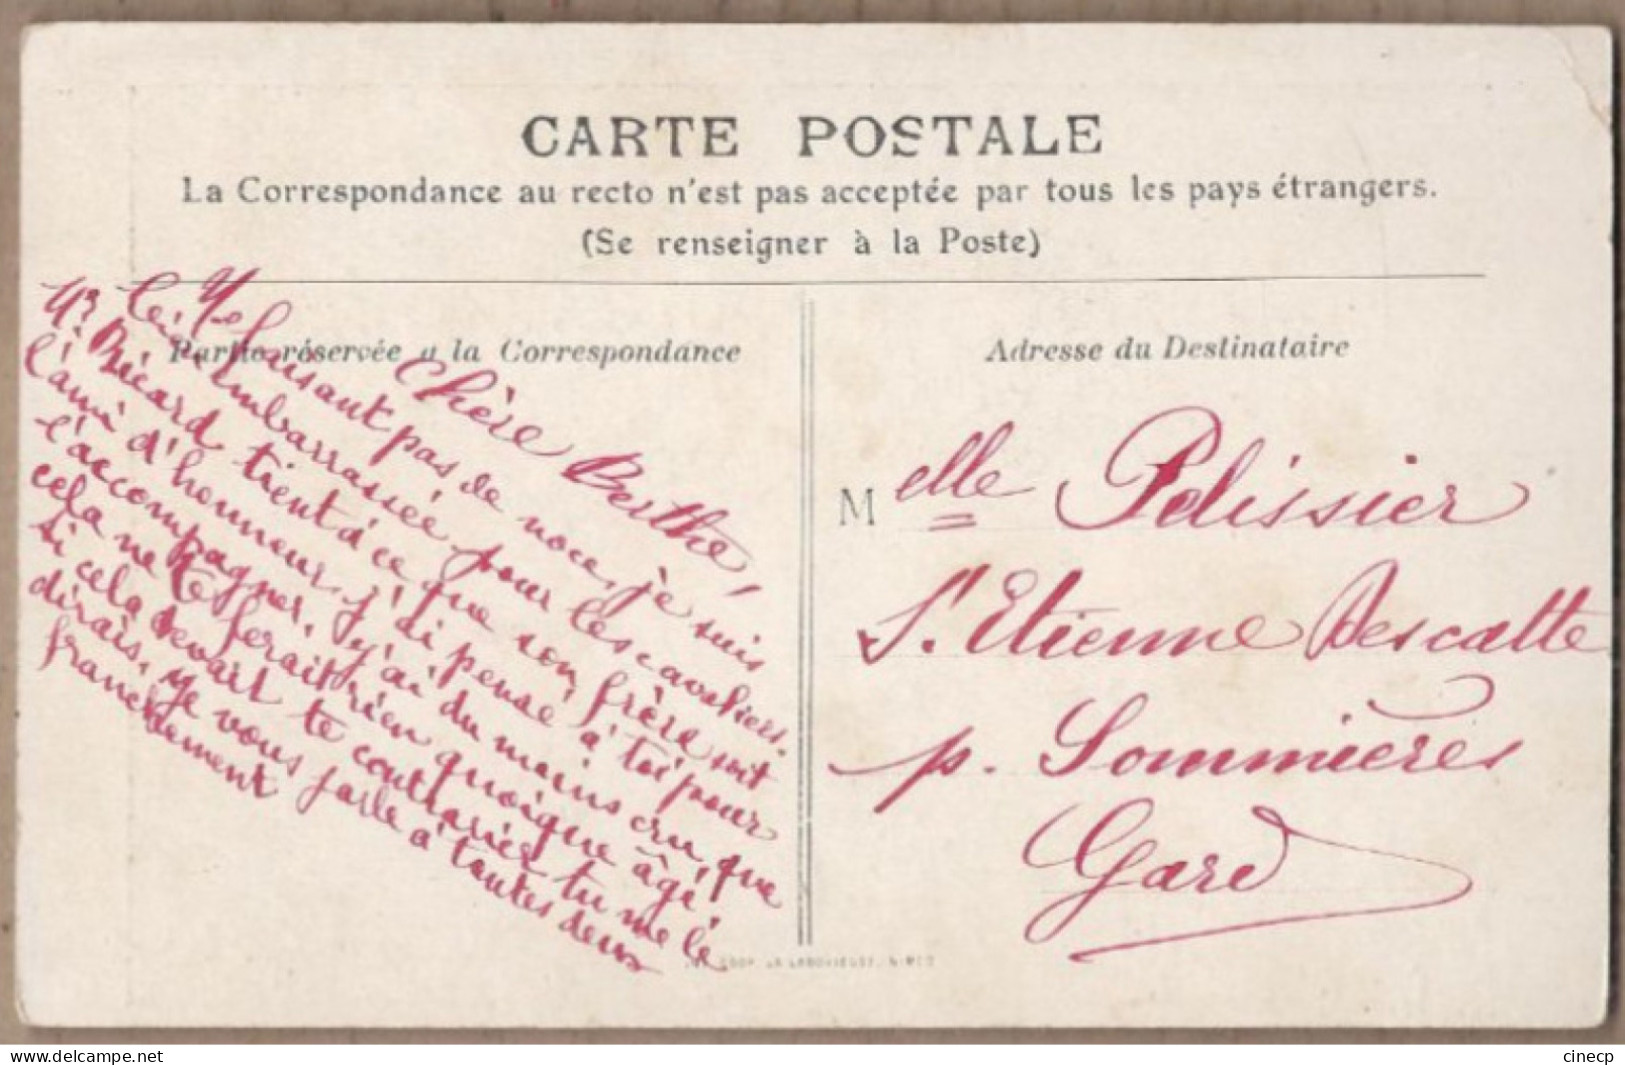 CARTE POSTALE
La Correspondance au recto n'est pas acceptée par tous les pays étrangers.
(Se renseigner à la Poste)
Partie réservée a la Correspondance
Adresse du Destinataire
Chère Berthe,
Ne faisant pas de noce, je suis
embarrassée pour les cavaliers.
Mr Ricard tient à ce que son frère soit
l'ami d'honneur, j'ai pensé à toi pour
l'accompagner, j'ai du moins cru que
cela ne te ferait rien quoique âgé.
Si cela devait te contrarier tu me le
dirais, je vous parle à toutes deux
franchement
Melle Pelissier
St. Etienne Descatte
p. Sommières
Gard
IMP. COOP. LA LABORIEUSE, NIMES
delcampe.net
cinecp